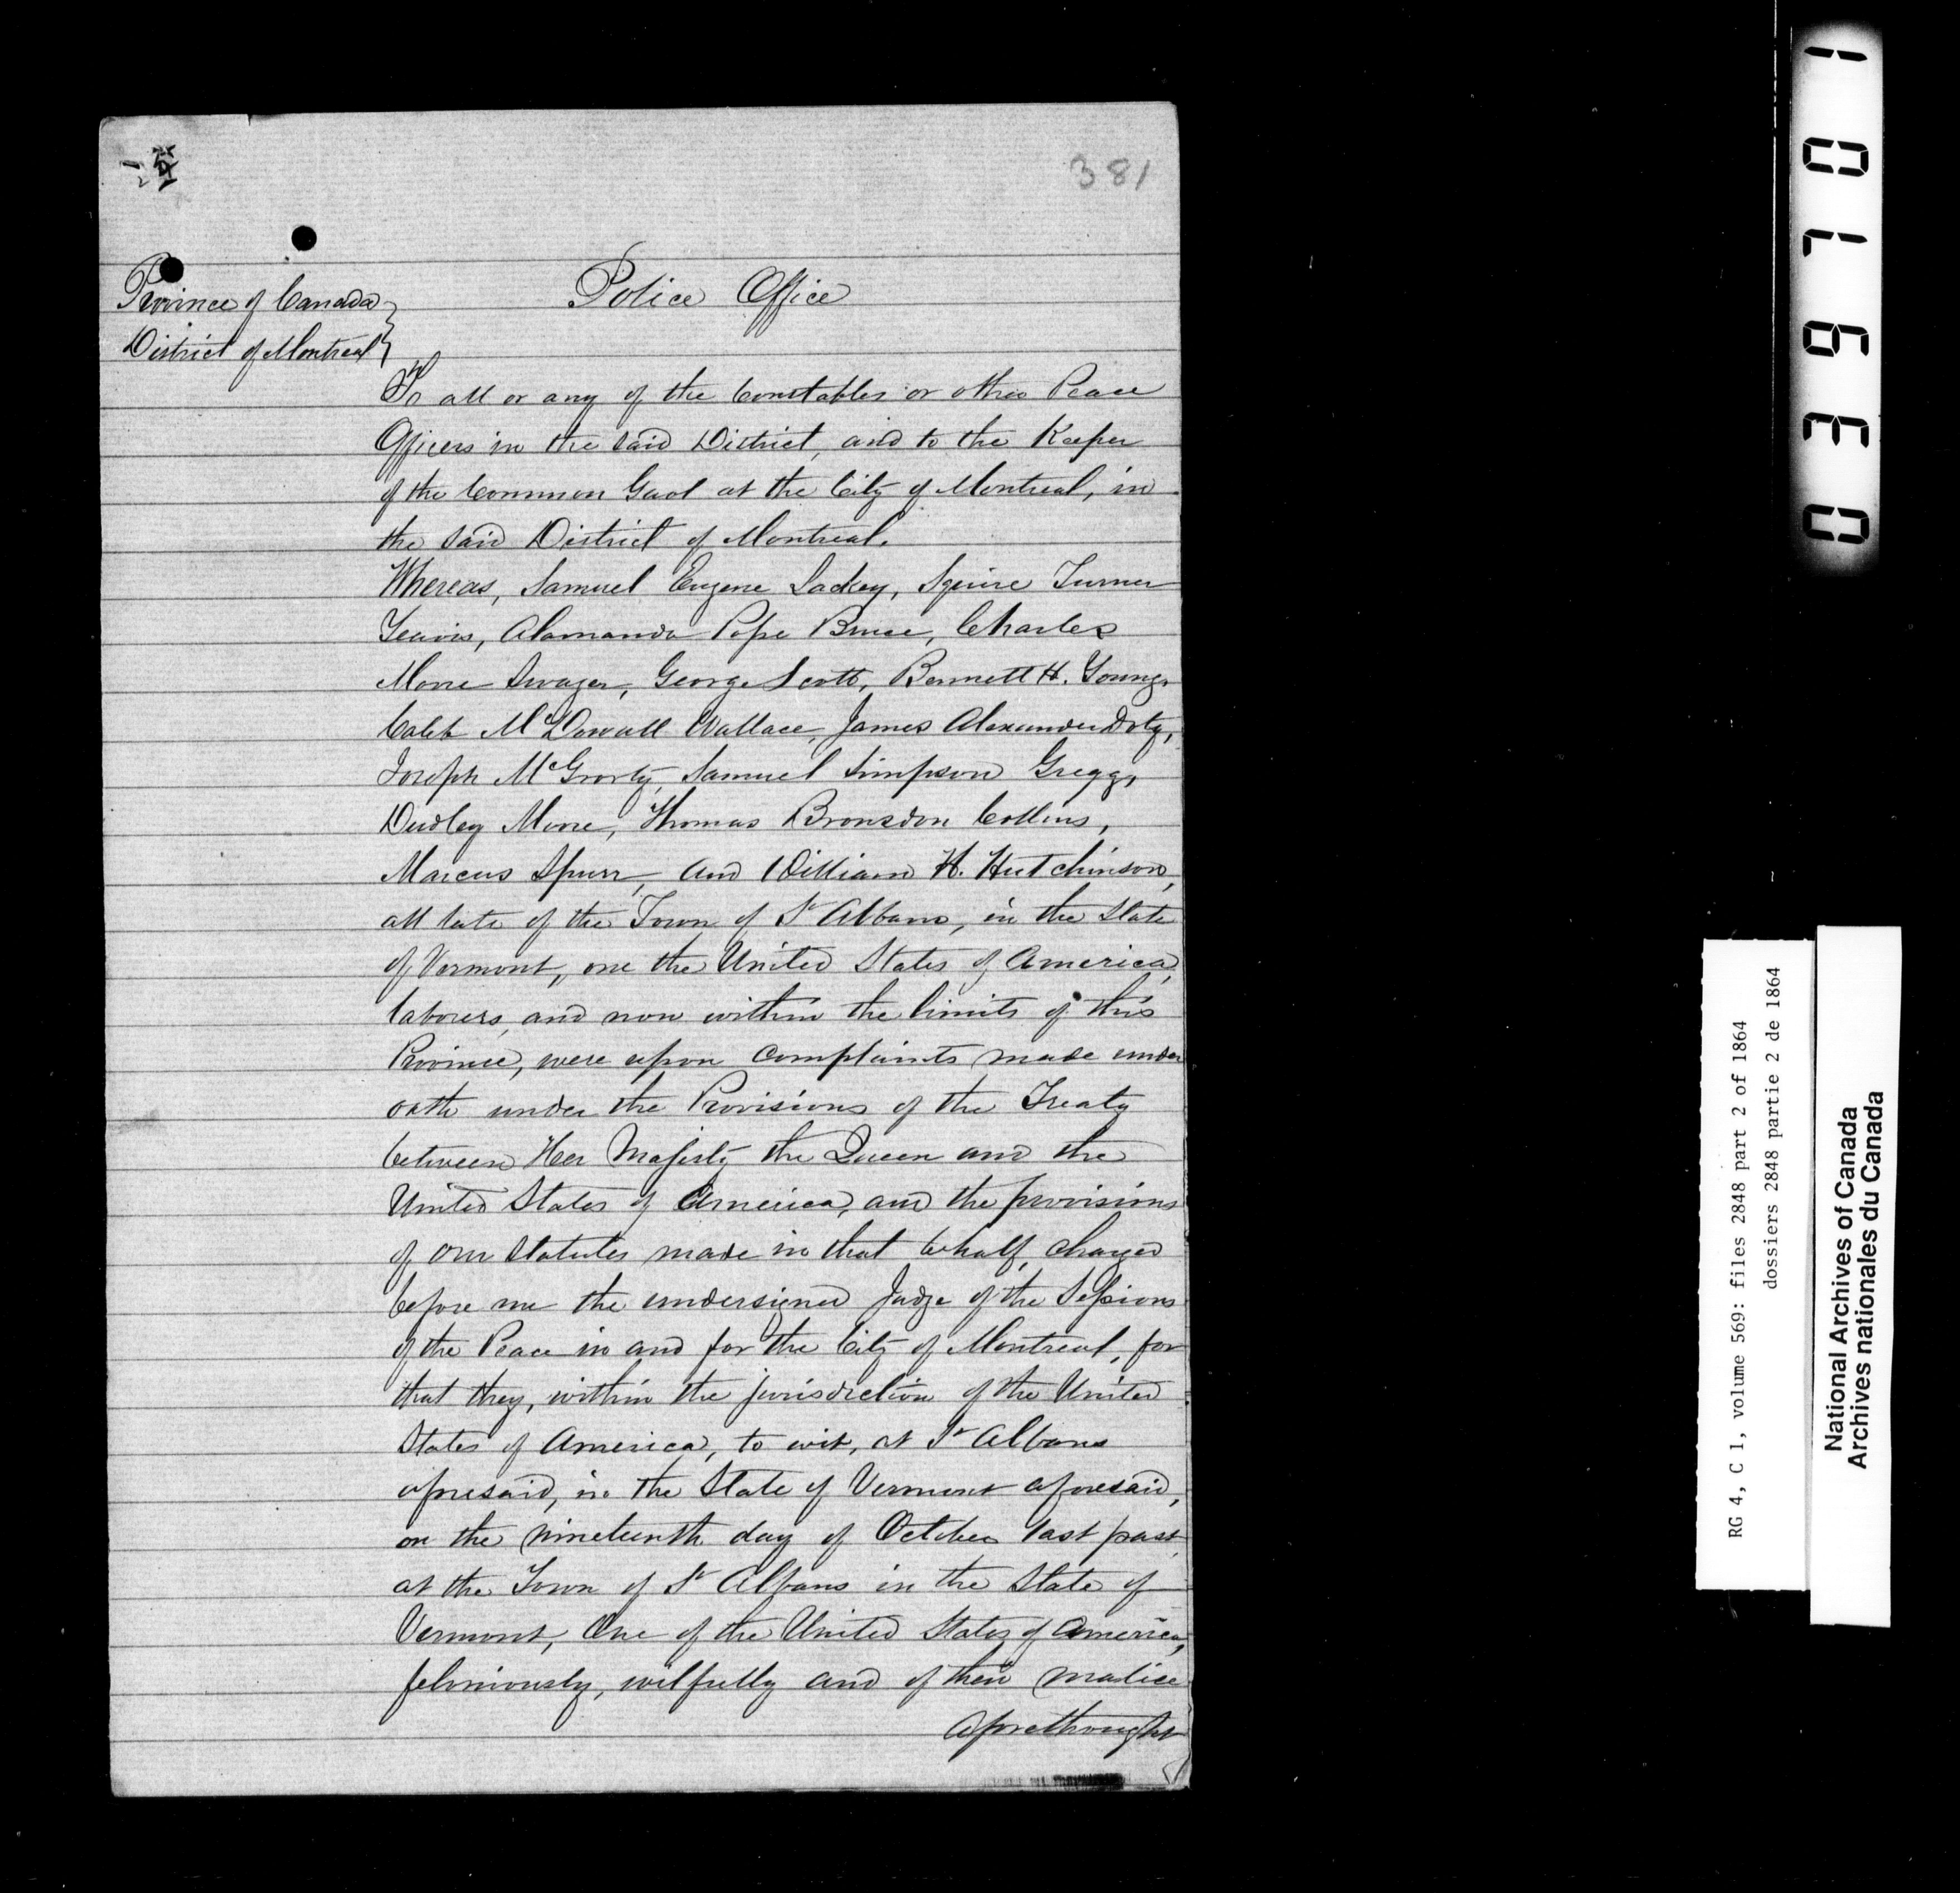 381
Police Office
Province of Canada
District of Montreal
To all or any of the Constables or other Peace
Officers in the said District, and to the Keeper
of the Common Gaol at the City of Montreal, in
the said District of Montreal.
Whereas, Samuel Eugene Lackey, Squire Turner
Teavis, Alamanda Pope Bruce, Charles
Moore Swager, George Scott, Bennett H. Young,
Caleb McDowall Wallace, James Alexander Doty,
Joseph McGrorty, Samuel Simpson Gregg,
Dudley Moore, Thomas Bronsdon Collins,
Marcus Spurr, and William H. Hutchinson,
all late of the Town of St Albans, in the State
of Vermont, one the United States of America,
laborers, and now within the limits of this
Province, were upon complaints made under
oath under the Provisions of the Treaty
between Her Majesty the Queen and the
United States of America, and the provisions
of our Statutes made in that behalf, charged
before me the undersigned Judge of the Sessions
of the Peace in and for the City of Montreal, for
that they, within the jurisdiction of the United
States of America, to wit, at St Albans
aforesaid, in the State of Vermont aforesaid,
on the nineteenth day of October last past
at the Town of St Albans in the State of
Vermont, One of the United States of America,
feloniously, wilfully and of their malice
aforethought
039701
RG 4, C 1, volume 569: files 2848 part 2 of 1864
dossiers 2848 partie 2 de 1864
National Archives of Canada
Archives nationales du Canada